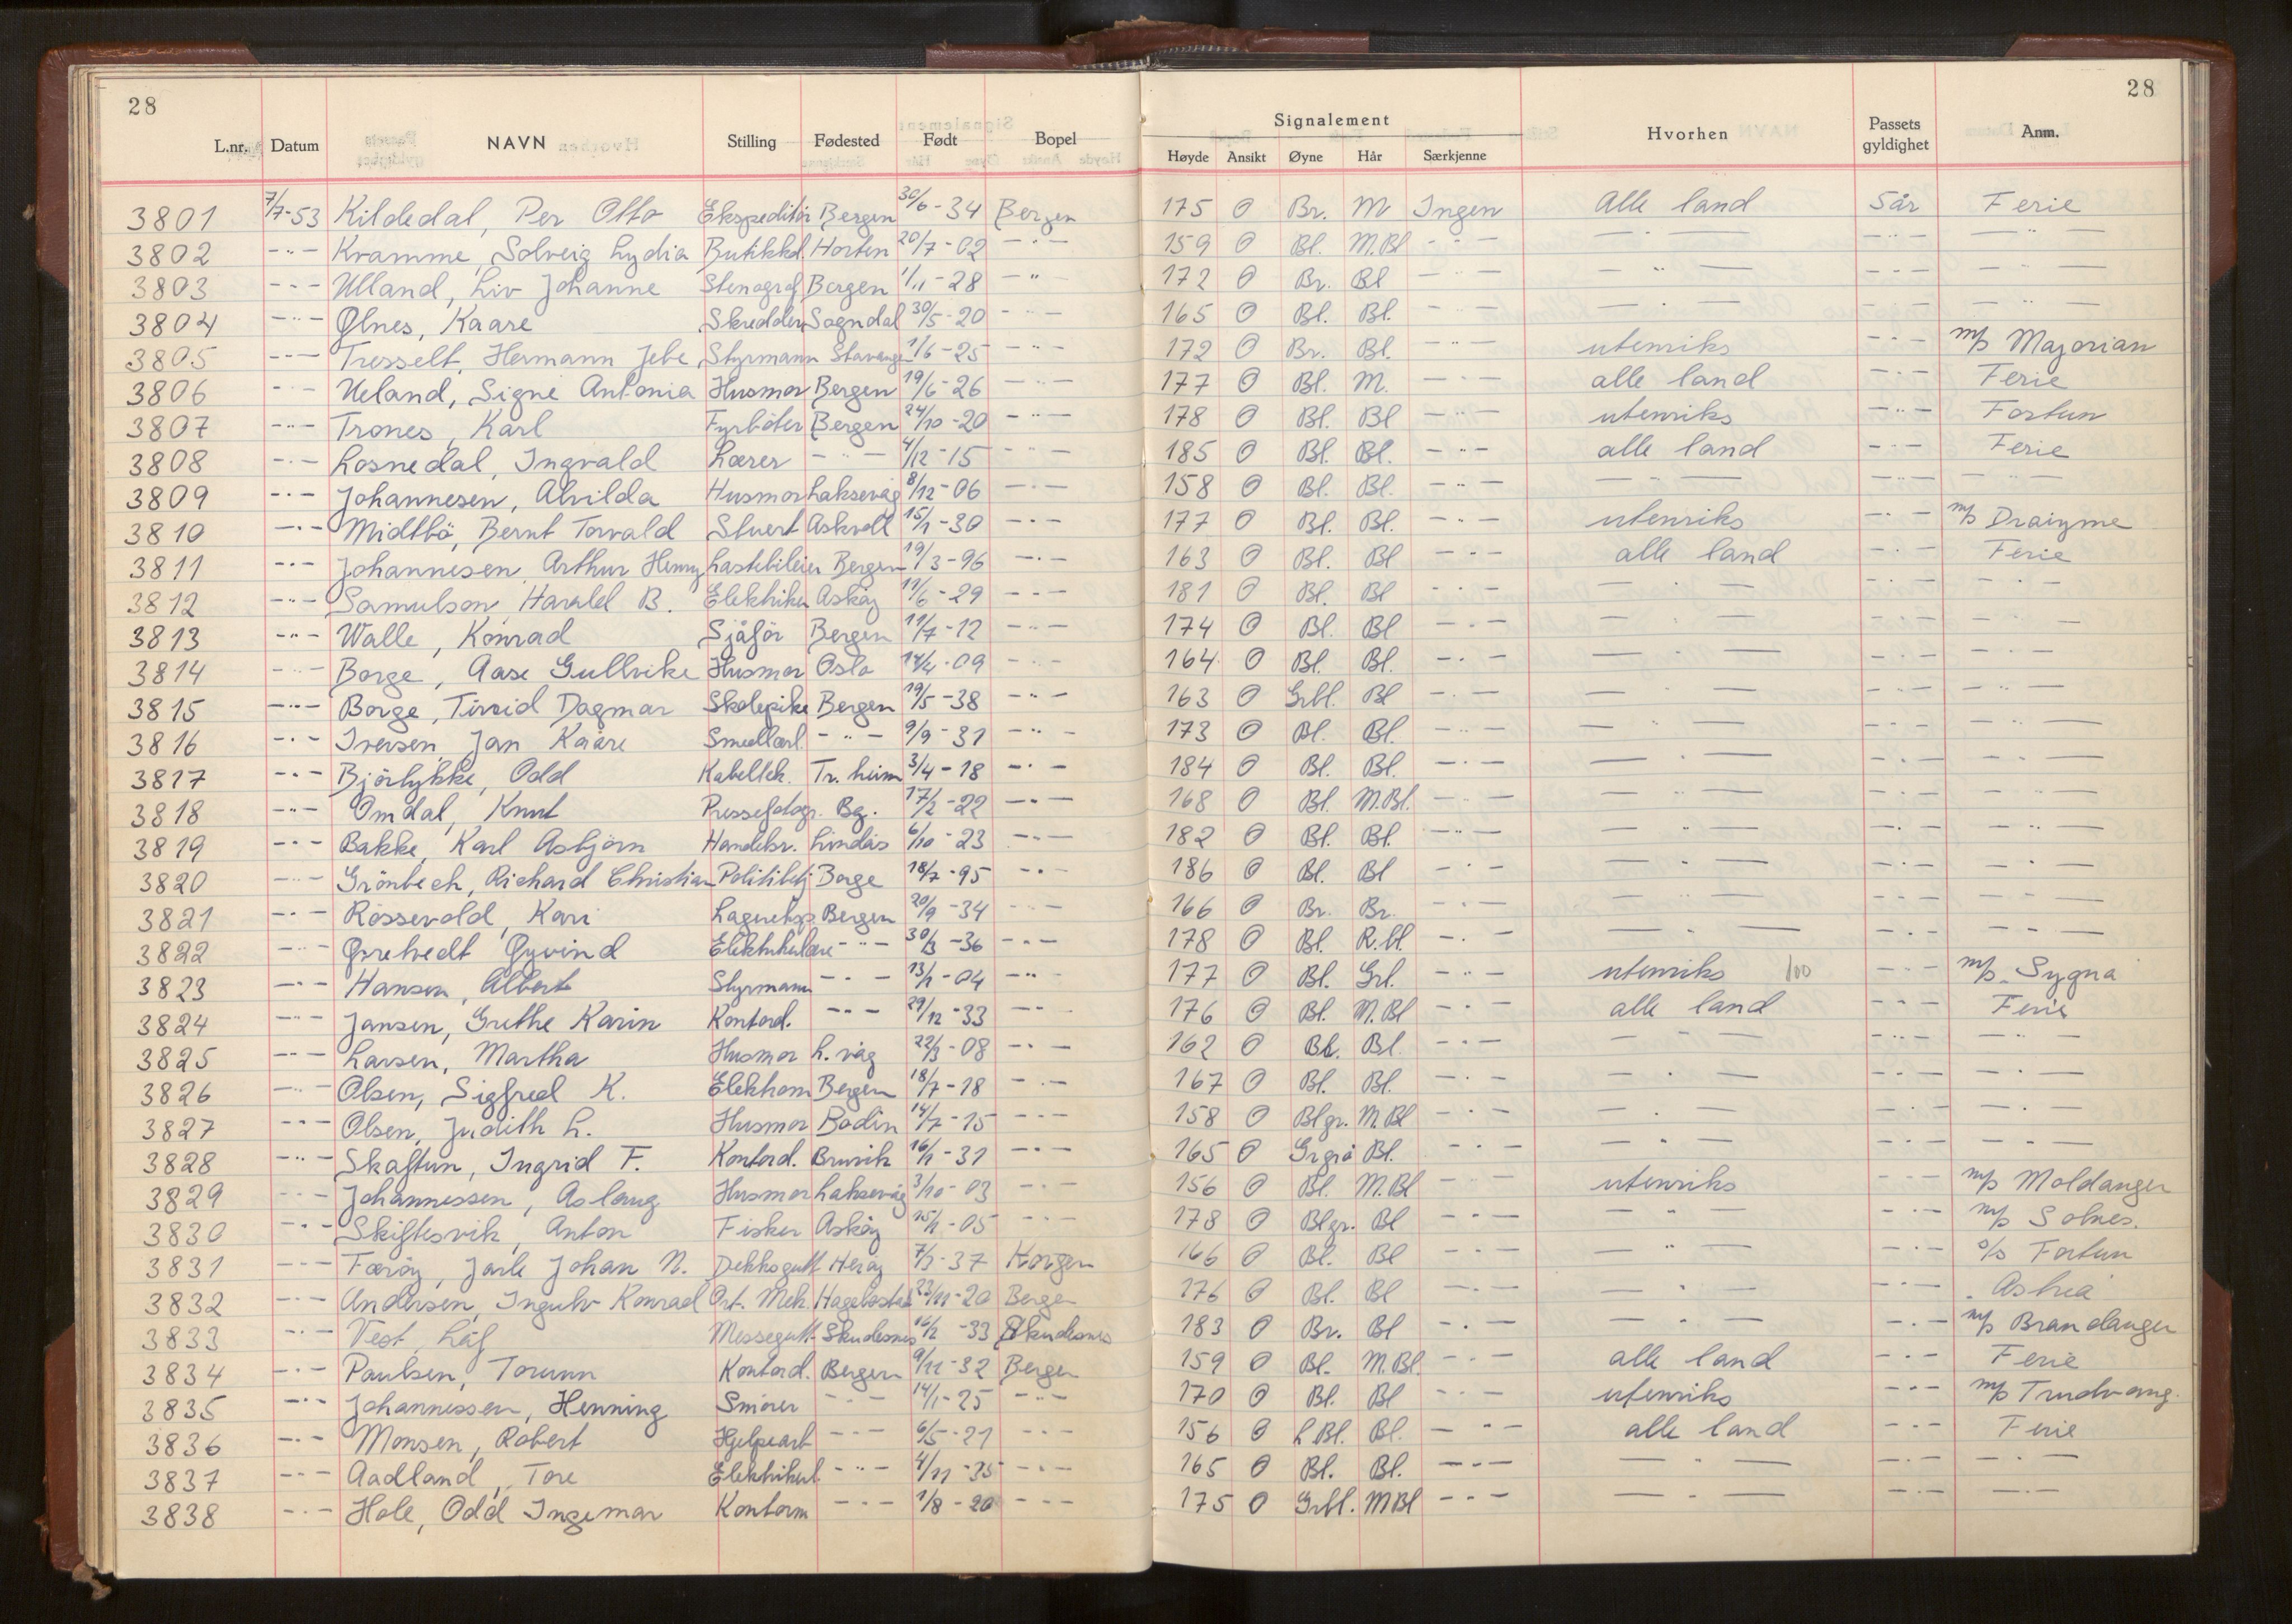 28
28
L.nr. Datum NAVN Stilling Fødested Født Bopel Signalement Høyde Ansikt Øyne Hår Særkjenne Hvorhen Passets gyldighet Anm.
3801 7/7-53 Kildedal, Per Otto Ekspeditør Bergen 30/6-34 Bergen 175 O Br. M Ingen Alle land 5år Ferie
3802 -"- Kramme, Solveig Lydia Butikkd. Horten 20/7-02 -"- 159 O Bl. M.Bl -"- -"- -"- -"-
3803 -"- Ulland, Liv Johanne Stenograf Bergen 1/11-28 -"- 172 O Br. Bl -"- -"- -"- -"-
3804 -"- Ølnes, Kaare Skredder Sogndal 30/5-20 -"- 165 O Bl. Bl. -"- -"- -"- -"-
3805 -"- Tresselt, Hermann Jebe Styrmann Stavanger 1/6-25 -"- 172 O Br. Bl. -"- utenriks -"- m/s Majorian
3806 -"- Ueland, Signe Antonia Husmor Bergen 19/6-26 -"- 177 O Bl. M. -"- alle land -"- Ferie
3807 -"- Trones, Karl Fyrböter Bergen 24/10-20 -"- 178 O Bl. Bl -"- utenriks -"- Fortun
3808 -"- Losnedal, Ingvald Lærer -"- 4/12-15 -"- 185 O Bl. Bl. -"- alle land -"- Ferie
3809 -"- Johannesen, Alvilda Husmor Laksevåg 8/12-06 -"- 158 O Bl. Bl. -"- -"- -"- -"-
3810 -"- Midtbö, Bernt Torvald Stuert Askvoll 15/1-30 -"- 177 O Bl. Bl. -"- utenriks -"- m/s
3811 -"- Johannesen, Arthur Henry Lastebileier Bergen 19/3-96 -"- 163 O Bl. Bl -"- alle land -"- Ferie
3812 -"- Samulson, Harald B. Elektriker Asköy 11/6-29 -"- 181 O Bl. Bl -"- -"- -"- -"-
3813 -"- Walle, Konrad Sjåför Bergen 11/7-12 -"- 174 O Bl. Bl -"- -"- -"- -"-
3814 -"- Borge, Aase Gullvike Husmor Oslo 14/4-09 -"- 164 O Bl. Bl. -"- -"- -"- -"-
3815 -"- Borge, Turid Dagmar Skolepike Bergen 19/5-38 -"- 163 O Grbl. Bl -"- -"- -"- -"-
3816 -"- Iversen, Jan Kaare Smedlærl. -"- 9/9-31 -"- 173 O Bl. Bl. -"- -"- -"- -"-
3817 -"- Björlykke, Odd Kabeltek. Tr.heim 3/4-18 -"- 184 O Bl. Bl. -"- -"- -"- -"-
3818 -"- Omdal, Knut Pressefotogr. Bg. 17/2-22 -"- 168 O Bl. M.Bl. -"- -"- -"- -"-
3819 -"- Bakke, Karl Asbjörn Handelsr. Lindås 6/10-23 -"- 182 O Bl. Bl. -"- -"- -"- -"-
3820 -"- Grönbech, Richard Christian Politibetj Borge 18/7-95 -"- 186 O Bl. Bl -"- -"- -"- -"-
3821 -"- Rössevold, Kari Lagereksp. Bergen 20/9-34 -"- 166 O Br. Br. -"- -"- -"- -"-
3822 -"- Øvretvedt Øyvind -"- 30/3-36 -"- 178 O Bl. R.bl. -"- -"- -"- -"-
3823 -"- Hansen, Albert Styrmann -"- 13/1-04 -"- 177 O Bl. Grl. -"- utenriks 100 -"- m/s Sygna
3824 -"- Jansen, Grethe Karin Kontord. -"- 29/12-33 -"- 176 O Bl. M.Bl -"- alle land -"- Ferie
3825 -"- Larsen, Martha Husmor L.våg 22/3-08 -"- 162 O Bl. Bl. -"- -"- -"- -"-
3826 -"- Olsen, Sigfred K. Elektrom Bergen 18/7-18 -"- 167 O Bl. Bl. -"- -"- -"- -"-
3827 -"- Olsen, Judith L. Husmor Bodin 14/7-15 -"- 158 O Blgr. M.Bl -"- -"- -"- -"-
3828 -"- Skaftun, Ingrid F. Kontord. Bruvik 16/1-31 -"- 165 O Grgrå Bl. -"- -"- -"- -"-
3829 -"- Johannessen, Aslaug Husmor Laksevåg 3/10-03 -"- 156 O Bl. M.Bl -"- utenriks -"- m/s Moldanger
3830 -"- Skiftesvik, Anton Fisker Asköy 15/1-05 -"- 178 O Blgr. Bl -"- -"- -"- m/s Solnes.
3831 -"- Færöy, Jarle Johan N. Dekksgutt Heröy 7/3-37 Korgen 166 O Bl. Bl -"- -"- -"- s/s Fortun
3832 -"- Andersen, Ingulv Konrad Ort. Mek. Hagebostad 23/11-20 Bergen 176 O Bl. Bl -"- -"- -"- Astrea
3833 -"- Vest, Leif Messegutt Skudesnes 16/2-33 Skudesnes 183 O Br. Bl -"- -"- -"- m/s Brandanger
3834 -"- Paulsen, Torunn Kontord. Bergen 9/11-32 Bergen 159 O Bl. M.Bl. -"- alle land -"- Ferie
3835 -"- Johannessen, Henning Smörer -"- 14/1-25 -"- 170 O Bl. Bl -"- utenriks -"- m/s Trudvang.
3836 -"- Monsen, Robert Hjelpearb -"- 6/5-21 -"- 156 O L.Bl. Bl. -"- alle land -"- Ferie
3837 -"- Aadland, Tore Elektrikerl -"- 4/11-35 -"- 165 O Bl. Bl. -"- -"- -"- -"-
3838 -"- Hole, Odd Ingemar Kontorm -"- 1/8-20 -"- 175 O Grbl. MBl -"- -"- -"- -"-